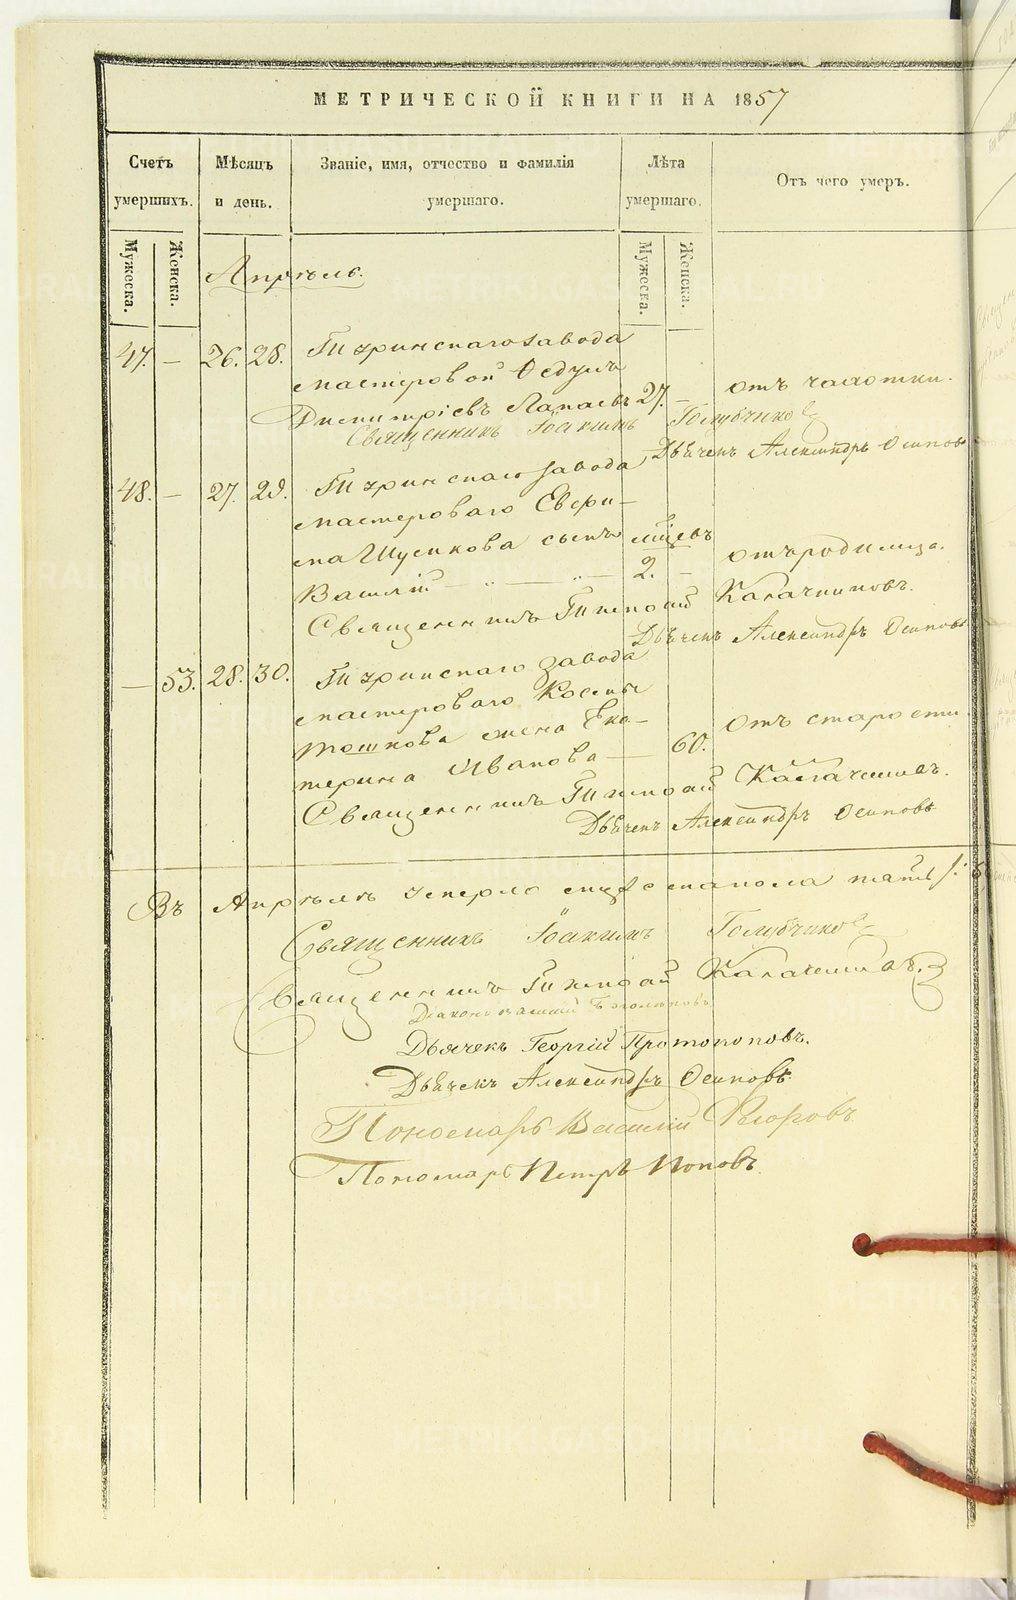 МЕТРИЧЕСКОЙ КНИГИ НА 1857
Счетъ умершихъ.
Мужеска.
Женска.
Мѣсяцъ и день.
Званіе, имя, отчество и фамилія умершаго.
Лѣта умершаго.
Мужеска.
Женска.
Отъ чего умеръ.
Апрѣль.
47. — 26. 28. завода
мастеровой Ѳедулъ
Димитріевъ 27. — отъ чахотки.
Священникъ Іоакимъ Голубчиковъ
Дьячекъ Александръ Осиповъ
48. — 27. 29. завода
мастероваго
сынъ мѣсяцъ
Василій — „ — „ — 2. — отъ родимца.
Священникъ Тимоѳей Калачниковъ.
Дьячекъ Александръ Осиповъ
— 53. 28. 30. завода
мастероваго Космы
жена Ека-
терина Иванова — 60. отъ старости.
Священникъ Тимоѳей Калачниковъ.
Дьячекъ Александръ Осиповъ
Въ Апрѣлѣ умерло
Священникъ Іоакимъ Голубчиковъ
Священникъ Тимоѳей Калачниковъ.
Діаконъ Василій
Дьячекъ Георгій Протопоповъ.
Дьячекъ Александръ Осиповъ
Пономарь Василій Егоровъ
Пономарь Петръ Поповъ.
METRIKI.GASO-URAL.RU